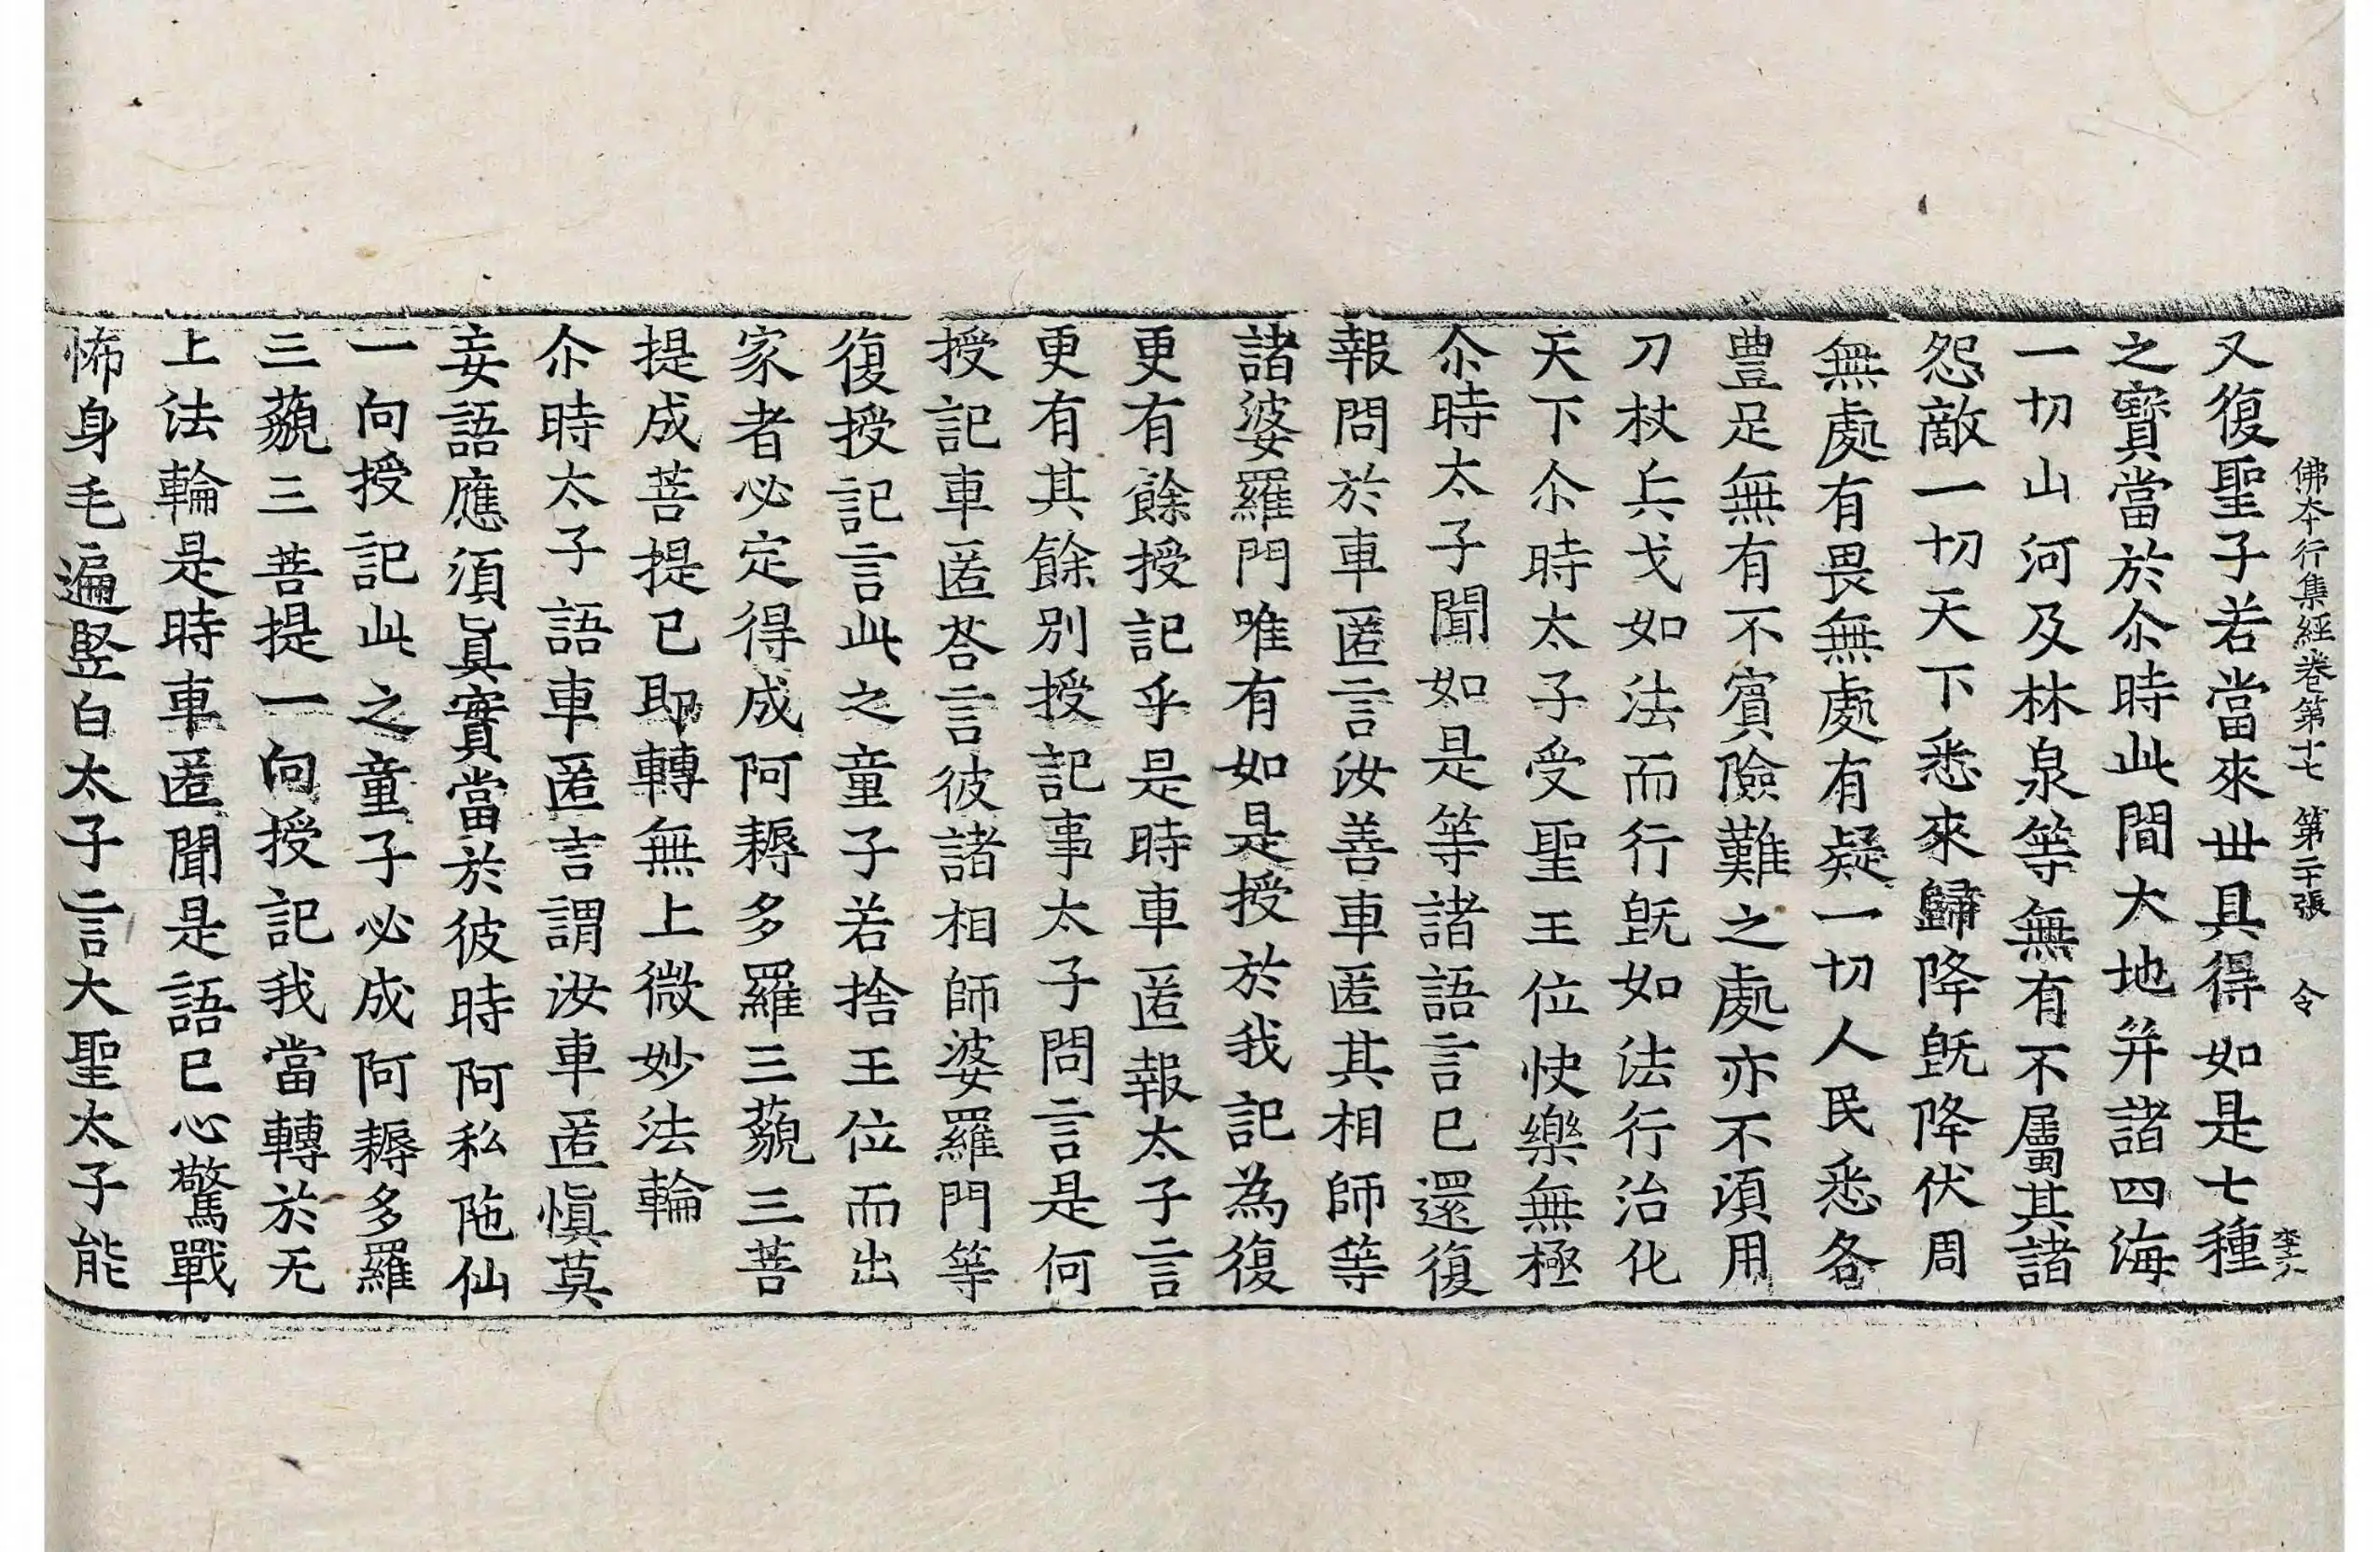 佛本行集經卷第十七　第二十張　令
又復聖子若當來丗具得如是七種
之寶當於尒時此間大地并諸四海
一切山河及林泉等無有不屬其諸
怨敵一切天下悉來歸降旣降伏周
無處有畏無處有疑一切人民悉各
豊足無有不賓險難之處亦不湏用
刀杖兵戈如法而行旣如法行治化
天下尒時太子受聖王位快樂無極
尒時太子聞如是等諸語言已還復
報問於車匿言汝善車匿其相師等
諸婆羅門唯有如是授於我記為復
更有餘授記乎是時車匿報太子言
更有其餘別授記事太子問言是何
授記車匿荅言彼諸相師婆羅門等
復授記言此之童子若捨王位而出
家者必定得成阿耨多羅三藐三菩
提成菩提已即轉無上微妙法輪
尒時太子語車匿言謂汝車匿愼莫
妄語應須眞實當於彼時阿私陁仙
一向授記此之童子必成阿耨多羅
三藐三菩提一向授記我當轉於无
上法輪是時車匿聞是語已心驚戰
怖身毛遍竪白太子言大聖太子能